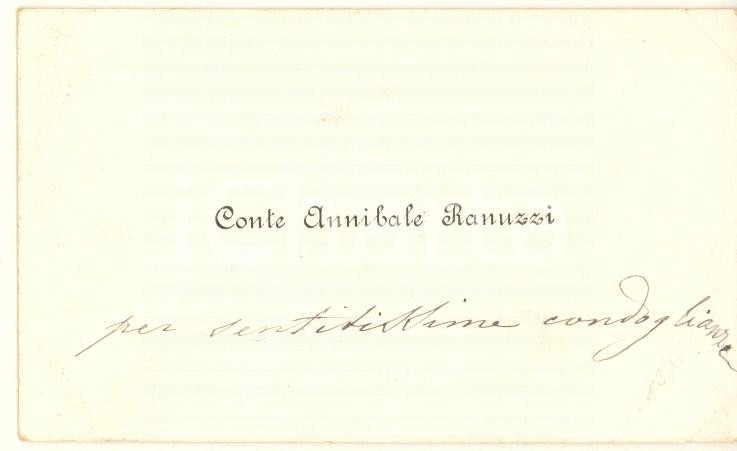 Conte Annibale Ranuzzi
per sentitissime condoglianze